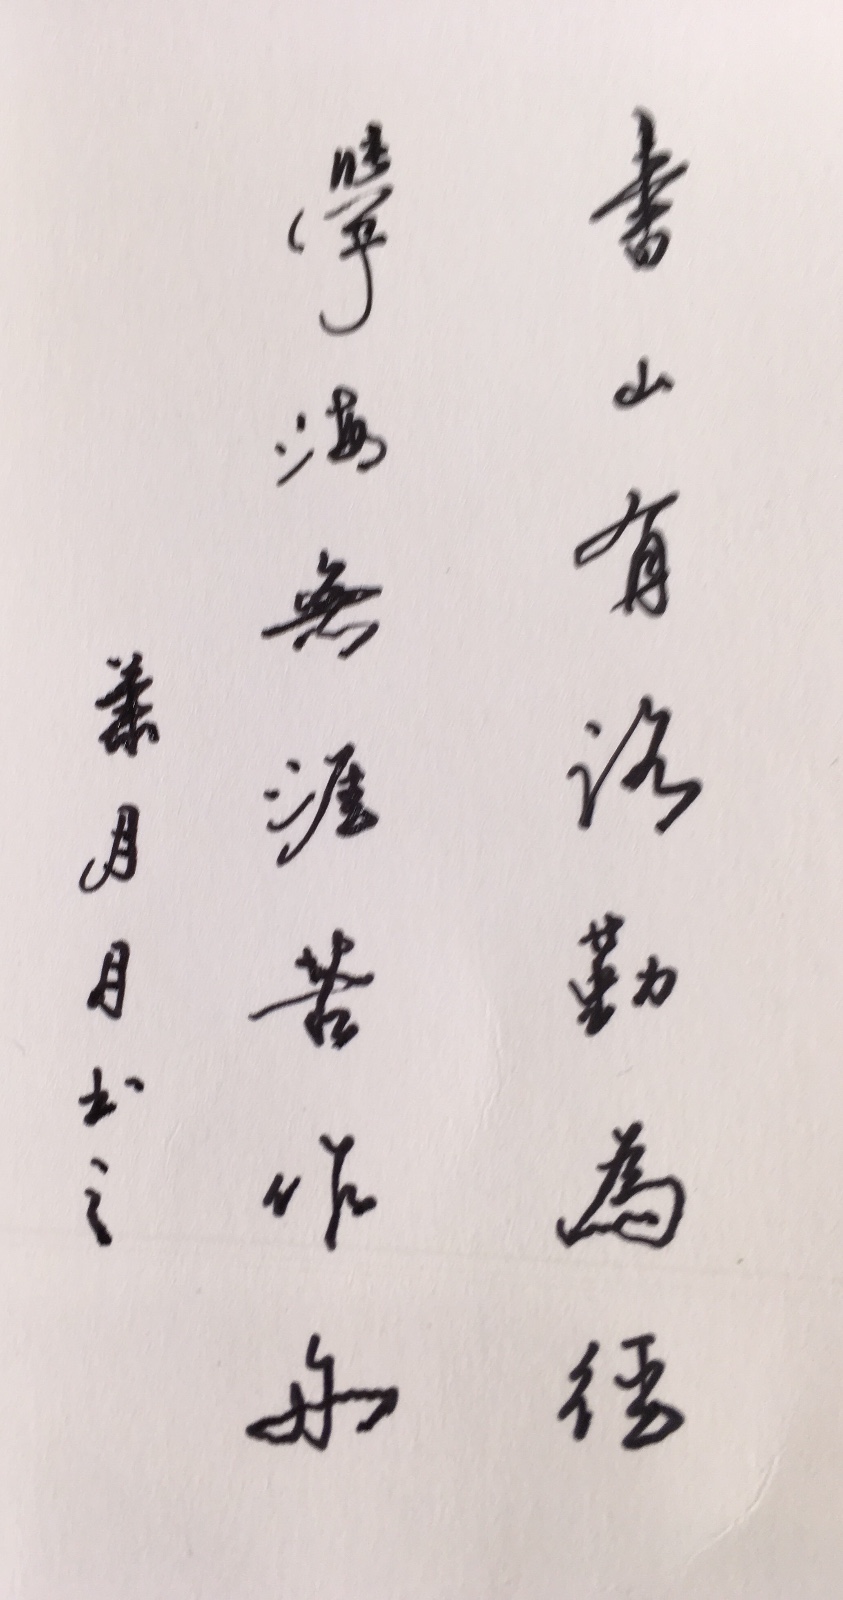 書山有路勤為徑
學海無涯苦作舟
葉月月书之